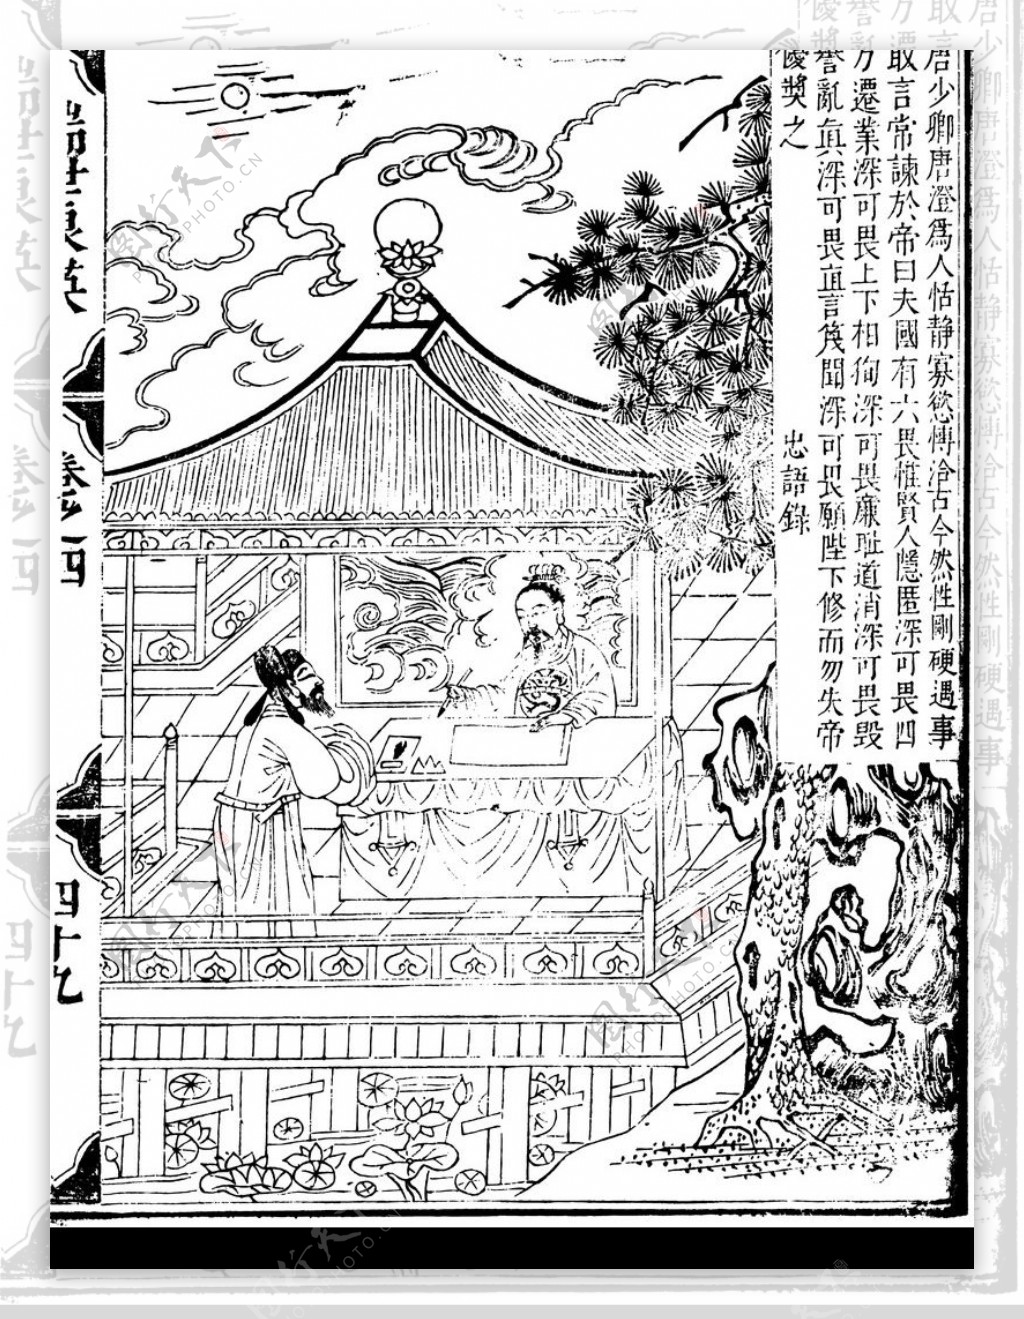 唐少卿唐澄爲人恬靜寡慾慱洽古今然性剛硬遇事
敢言常諫於帝曰夫國有六畏惟賢人隱匿深可畏四
方遷業深可畏上下相徇深可畏廉耻道消深可畏毀
譽亂眞深可畏直言篾聞深可畏願陛下修而勿失帝
優奬之
忠語錄
卷之四
四十九